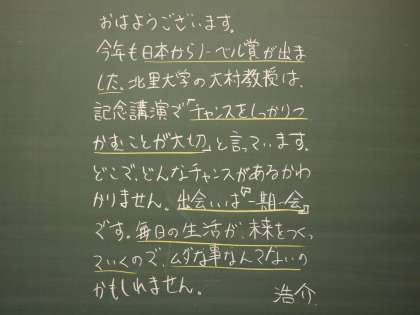 おはようございます。
今年も日本からノーベル賞が出ま
した。北里大学の大村教授は、
記念講演で「チャンスをしっかりつ
かむことが大切」と言っています。
どこで、どんなチャンスがあるかわ
かりません。出会いは『一期一会』
です。毎日の生活が、未来をつくっ
ていくので、ムダな事なんてないの
かもしれません。 浩介